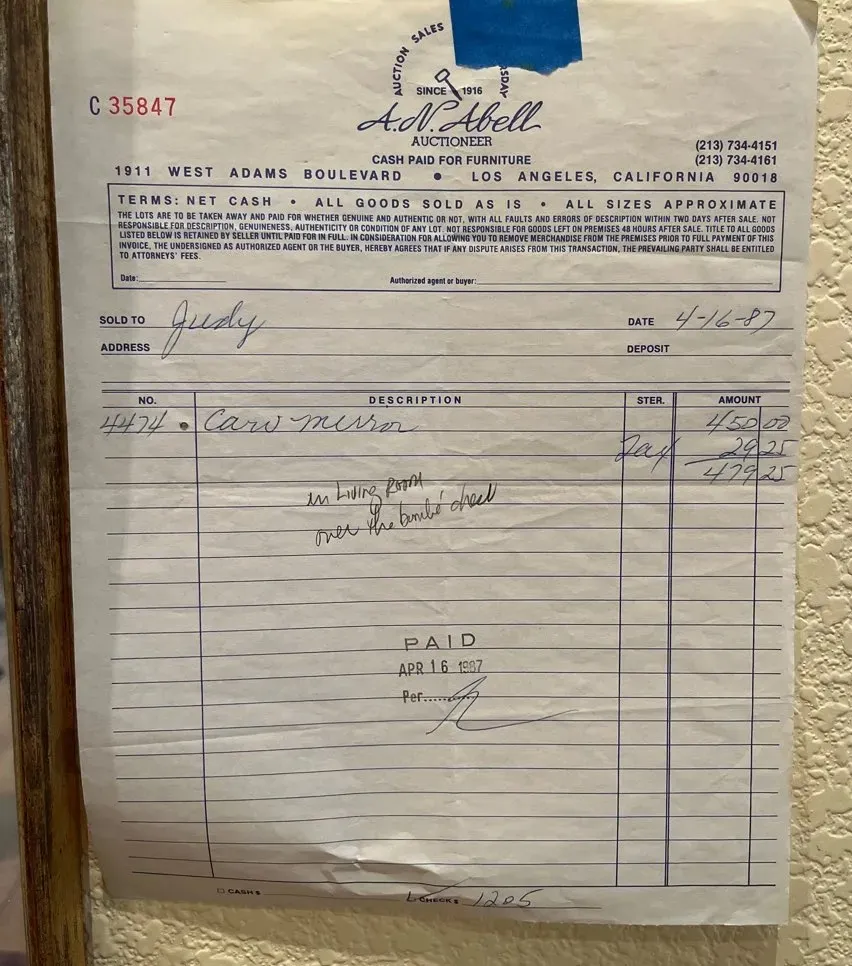 AUCTION SALES
SINCE 1916
C 35847
A.N. Abell
AUCTIONEER
CASH PAID FOR FURNITURE
(213) 734-4151
(213) 734-4161
1911 WEST ADAMS BOULEVARD • LOS ANGELES, CALIFORNIA 90018
TERMS: NET CASH • ALL GOODS SOLD AS IS • ALL SIZES APPROXIMATE
THE LOTS ARE TO BE TAKEN AWAY AND PAID FOR WHETHER GENUINE AND AUTHENTIC OR NOT, WITH ALL FAULTS AND ERRORS OF DESCRIPTION WITHIN TWO DAYS AFTER SALE. NOT
RESPONSIBLE FOR DESCRIPTION, GENUINENESS, AUTHENTICITY OR CONDITION OF ANY LOT. NOT RESPONSIBLE FOR GOODS LEFT ON PREMISES 48 HOURS AFTER SALE. TITLE TO ALL GOODS
LISTED BELOW IS RETAINED BY SELLER UNTIL PAID FOR IN FULL. IN CONSIDERATION FOR ALLOWING YOU TO REMOVE MERCHANDISE FROM THE PREMISES PRIOR TO FULL PAYMENT OF THIS
INVOICE, THE UNDERSIGNED AS AUTHORIZED AGENT OR THE BUYER, HEREBY AGREES THAT IF ANY DISPUTE ARISES FROM THIS TRANSACTION, THE PREVAILING PARTY SHALL BE ENTITLED
TO ATTORNEYS' FEES.
Date: Authorized agent or buyer:
SOLD TO Judy DATE 4-16-87
ADDRESS DEPOSIT
NO. DESCRIPTION STER. AMOUNT
4474 • Carv mirror 450 00
Tax 29 25
479 25
in Living Room
over the bombé chest
PAID
APR 16 1987
Per......
CASH $ CHECK $ 1205